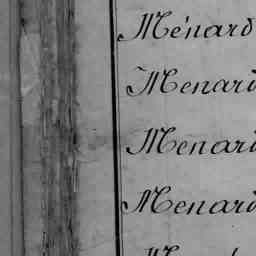 Ménard
Menard
Menard
Menard